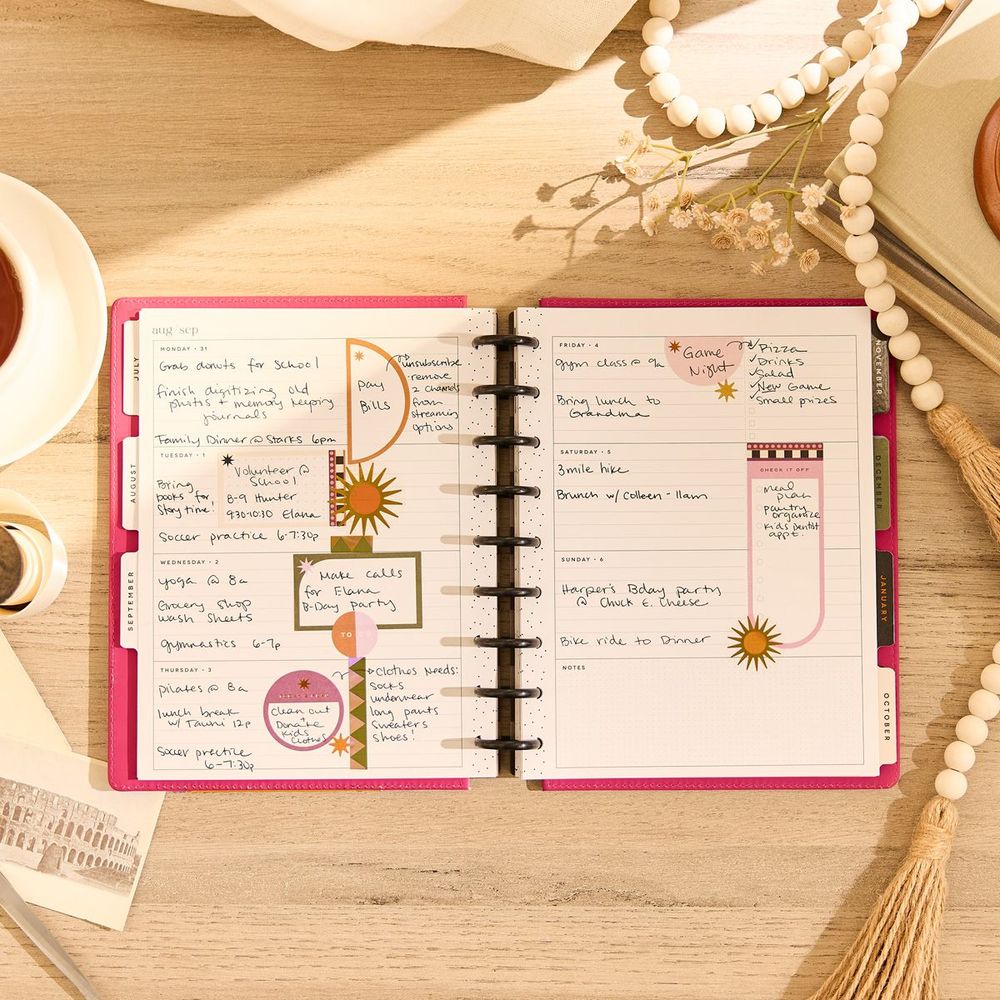 aug/sep
MONDAY • 31
Grab donuts for School
finish digitizing old
photos + memory keeping
journals
Family Dinner @ Starks 6pm
Pay
Bills
unsubscribe
remove
2 channels
from
streaming
options
TUESDAY • 1
Bring
books for
Story time!
Volunteer @
School
8-9 Hunter
9:30-10:30 Elana
Soccer practice 6-7:30p
WEDNESDAY • 2
yoga @ 8a
Grocery shop
wash sheets
gymnastics 6-7p
Make calls
for Elana
B-Day party
TO DO
THURSDAY • 3
pilates @ 8a
lunch break
w/ Tauni 12p
Soccer practice
6-7:30p
clean out
+
Donate
Kids
Clothes
Clothes Needs:
socks
underwear
long pants
sweaters
shoes!
FRIDAY • 4
gym class @ 9a
Bring lunch to
Grandma
Game
Night
Pizza
Drinks
Salad
New Game
Small prizes
SATURDAY • 5
3 mile hike
Brunch w/ Colleen - 11am
CHECK IT OFF
meal
plan
pantry
organize
kids dentist
appt.
SUNDAY • 6
Harper's Bday party
@ Chuck E. Cheese
Bike ride to Dinner
NOTES
JULY
AUGUST
SEPTEMBER
NOVEMBER
DECEMBER
JANUARY
OCTOBER